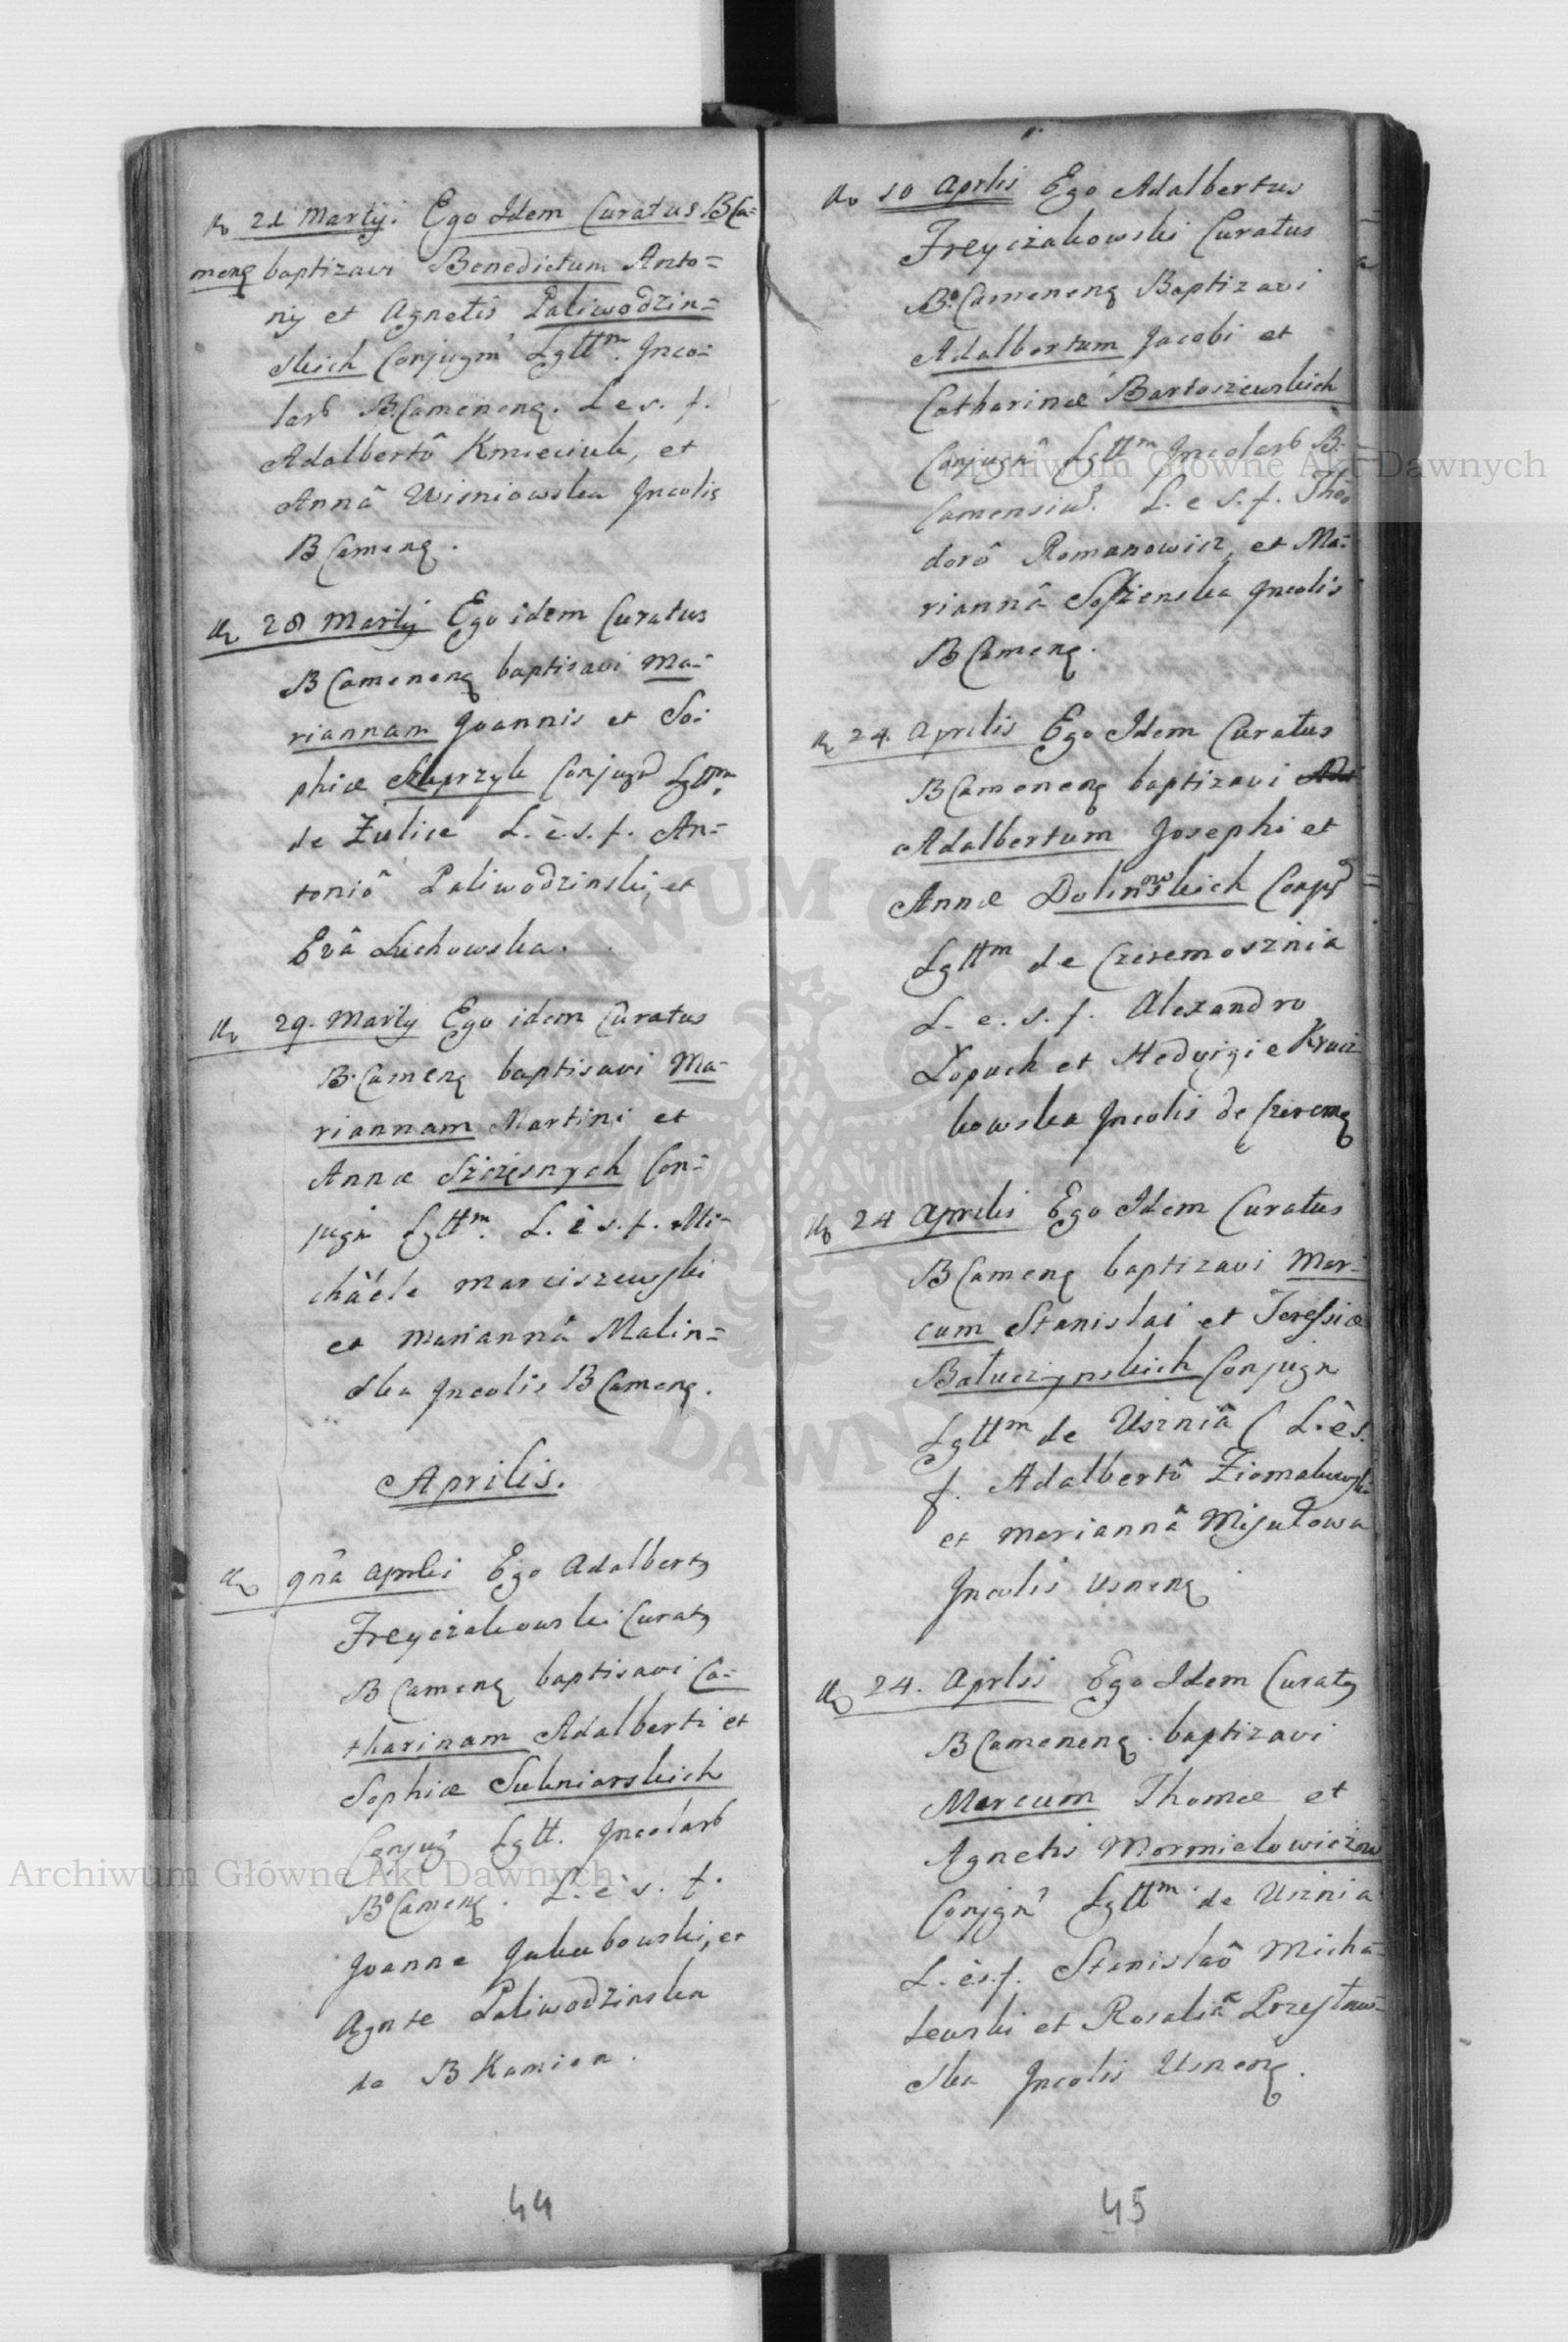 21 Martÿ. Ego Idem Curatus BCa=
meng baptizavi Benedictum Anto=
nÿ et Agnetis Paliwodzin=
skich Conjugm Lgttm. Inco=
larb B.Cameneng. L e s. f.
Adalbertô Kmieciuk, et
Annâ Wisniowska Incolis
B Cameng.
28 Martÿ Ego idem Curatus
B Cameneng baptisavi Ma=
riannam Joannis et So=
phiæ Skuprzyk Conjugd Lgttm.
de Zulice L. è. s. f. An=
toniô Paliwodzinski, et
Evâ Lichowska.
29. Martÿ Ego idem Curatus
B. Cameng baptisavi Ma=
riannam Martini et
Annæ Szczęsnych Con=
jugn Lgttm. L. è s. f. Mi=
chaële Marciszewski
et Mariannâ Malin=
ska Incolis B Cameng.
Aprilis.
9nâ Aprilis Ego Adalbertg
Freyczakowski Curatg
B Cameng baptisavi Ca=
tharinam Adalberti et
Sophiæ Sukniarskich
Conjug Lgtt. Incolarb
Bo Cameng. L. è s. f.
Joanne Jakubowski, et
Agnte Paliwodzinska
de B Kamien.
44
10 Aprlis Ego Adalbertus
Freyczakowski Curatus
Bo.Cameneng Baptizavi
Adalbertum Jacobi et
Catharinæ Bartoszewskich
Conjugn Lgttm Incolarb B.
L. e S. f. Theo
dorô Romanowicz, et Ma=
riannâ Incolis
B Cameng.
24. Aprilis Ego Idem Curatus
B Cameneng baptizavi
Adalbertum Josephi et
Annæ Dolinowskich Conjgd
Lgttm de Czeremosznia
L. e. s. f. Alexandro
Łopuch et Hedvigie
kowska Incolis de Czeremg
24 Aprilis Ego Idem Curatus
B Cameng baptizavi Mar=
cum Stanislai et Teressiæ
Batuczynskich Conjugn
Lgttm de Uszniâ ( L. è s.
f. Adalbertô Ziomakowski
et Mariannâ Misułowa
Incolis Usneng
24. Aprlis Ego Idem Curatg
B Cameneng. baptizavi
Marcum Thomæ et
Agnetis Mormiełowiczow
Conjgn Lgttm de Usznia
L. è s. f. Stanislaô Micha=
lewski et Rosaliâ Przystaw=
ska Incolis Usneng.
45
Archiwum Główne Akt Dawnych
Archiwum Główne Akt Dawnych